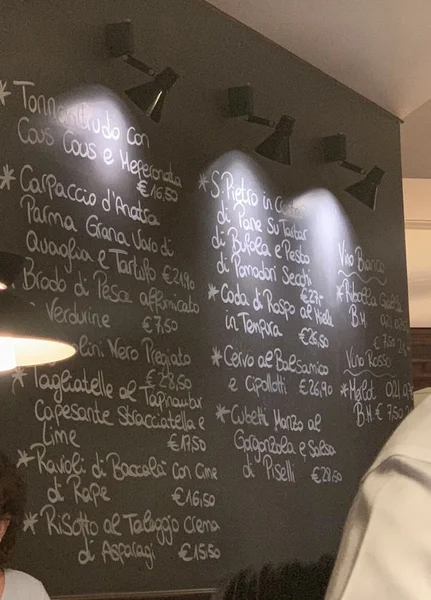 * Tonno Crudo con
Cous Cous e Melanzana
€16,50
* Carpaccio d'Anatra
Parma Grana Uovo di
Quaglia e Tartufo €21,90
Brodo di Pesce affumicato
e Verdurine €7,50
Nero Pregiato
€28,50
* Tagliatelle al Tapinambur
Capesante Stracciatella e
Lime €17,50
* Ravioli di Baccalà con Cime
di Rape €16,50
* Risotto al Taleggio Crema
di Asparagi €15,50
* S. Pietro in
di Pane Su Tartar
di Bufala e Pesto
di Pomodori Secchi
€27,-
* Coda di Rospo al Miele
in Tempura €26,50
* Cervo al Balsamico
e Cipollotti €26,90
* Cubetti Manzo al
Gorgonzola e Salsa
di Piselli €28,50
Vino Bianco
* Ribolla Gialla
B.H.
€ 7,50
Vino Rosso
* Merlot 0,21
B.H € 7,50